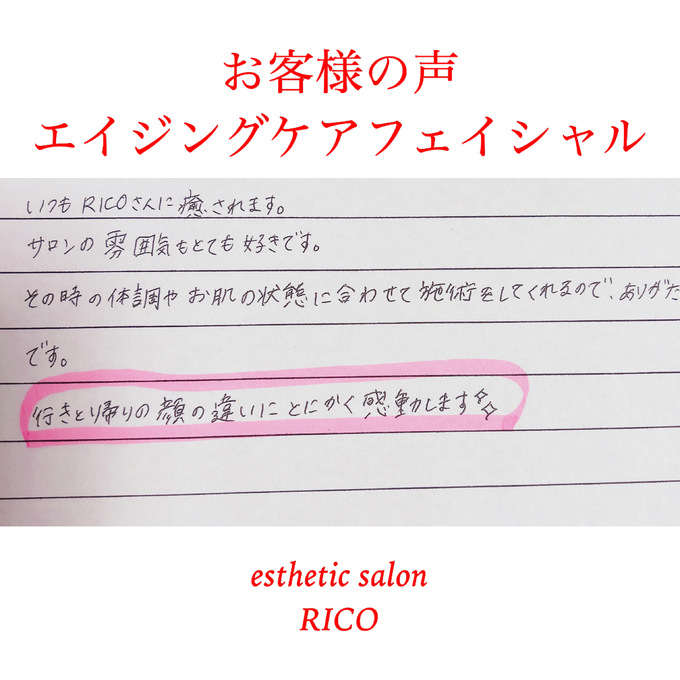 お客様の声
エイジングケアフェイシャル
いつもRICOさんに癒されます。
サロンの雰囲気もとても好きです。
その時の体調やお肌の状態に合わせて施術をしてくれるので、ありがた
です。
行きと帰りの顔の違いにとにかく感動します✨
esthetic salon
RICO